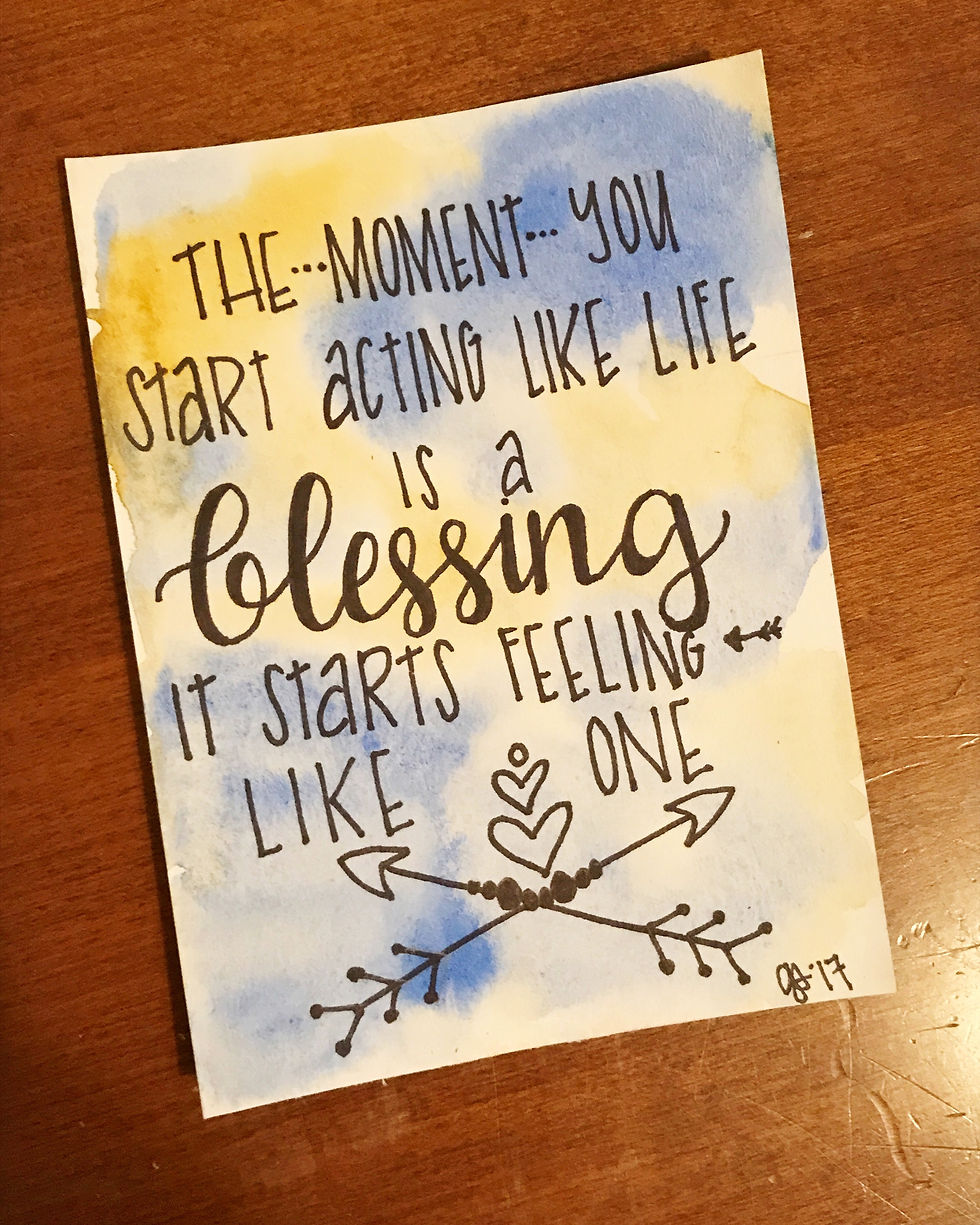 THE...MOMENT...YOU
START aCTING LIKE LIFE
IS a
blessing
IT STaRTS FEELING
LIKE ONE
'17